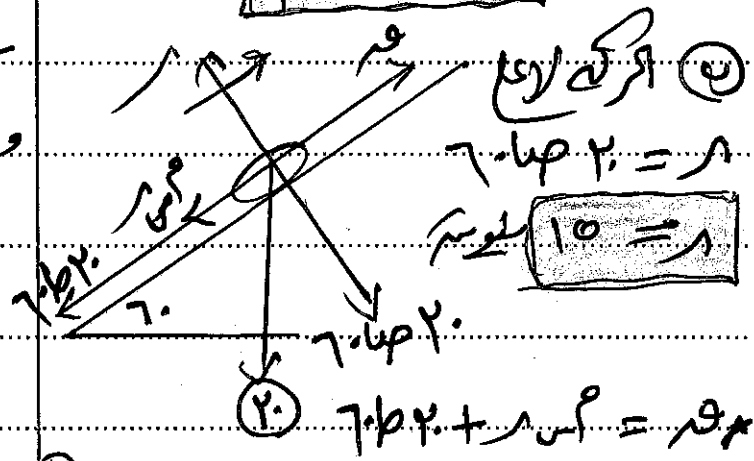 ب الحركة لاعلى
ر = ٢٠ حتا ٦٠
ر = ١٠ نيوتن
ر
ق
٢٠ حا ٦٠
٦٠
٢٠ حتا ٦٠
٢٠
ر + ٢٠ حا ٦٠